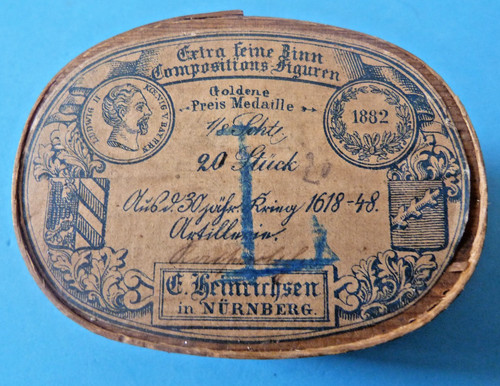 Extra feine Zinn
Compositions-Figuren
Goldene
Preis Medaille
LUDWIG II KOENIG V. BAYERN
1882
20 Stück
20
Aus d. 30 jähr. Krieg 1618-48.
Artillerie.
E. Heinrichsen
in NÜRNBERG.